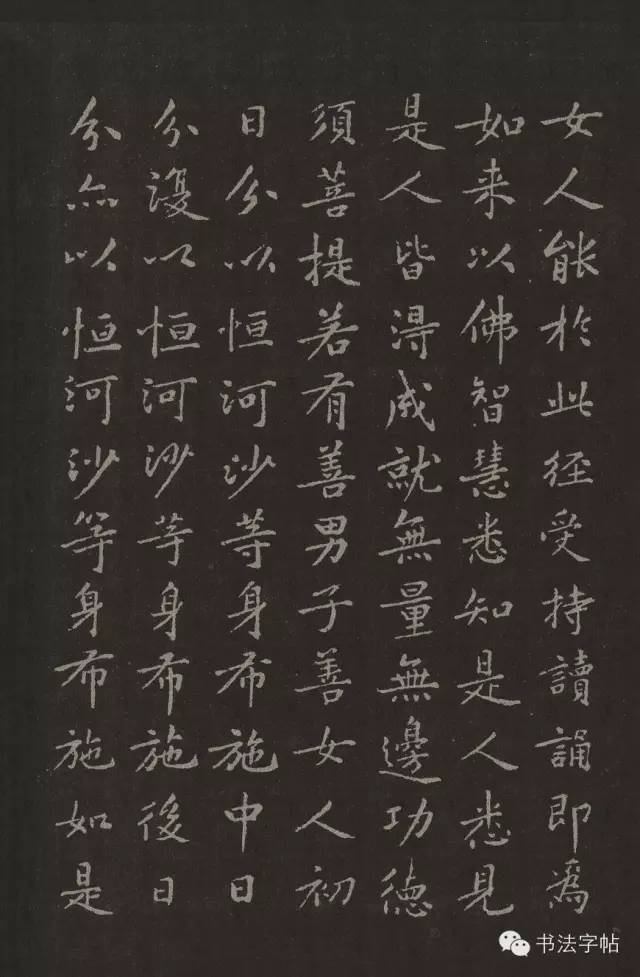 女人能於此経受持讀誦即為
如来以佛智慧悉知是人悉見
是人皆得成就無量無邊功德
須菩提若有善男子善女人初
日分以恒河沙等身布施中日
分復以恒河沙等身布施後日
分亦以恒河沙等身布施如是
书法字帖